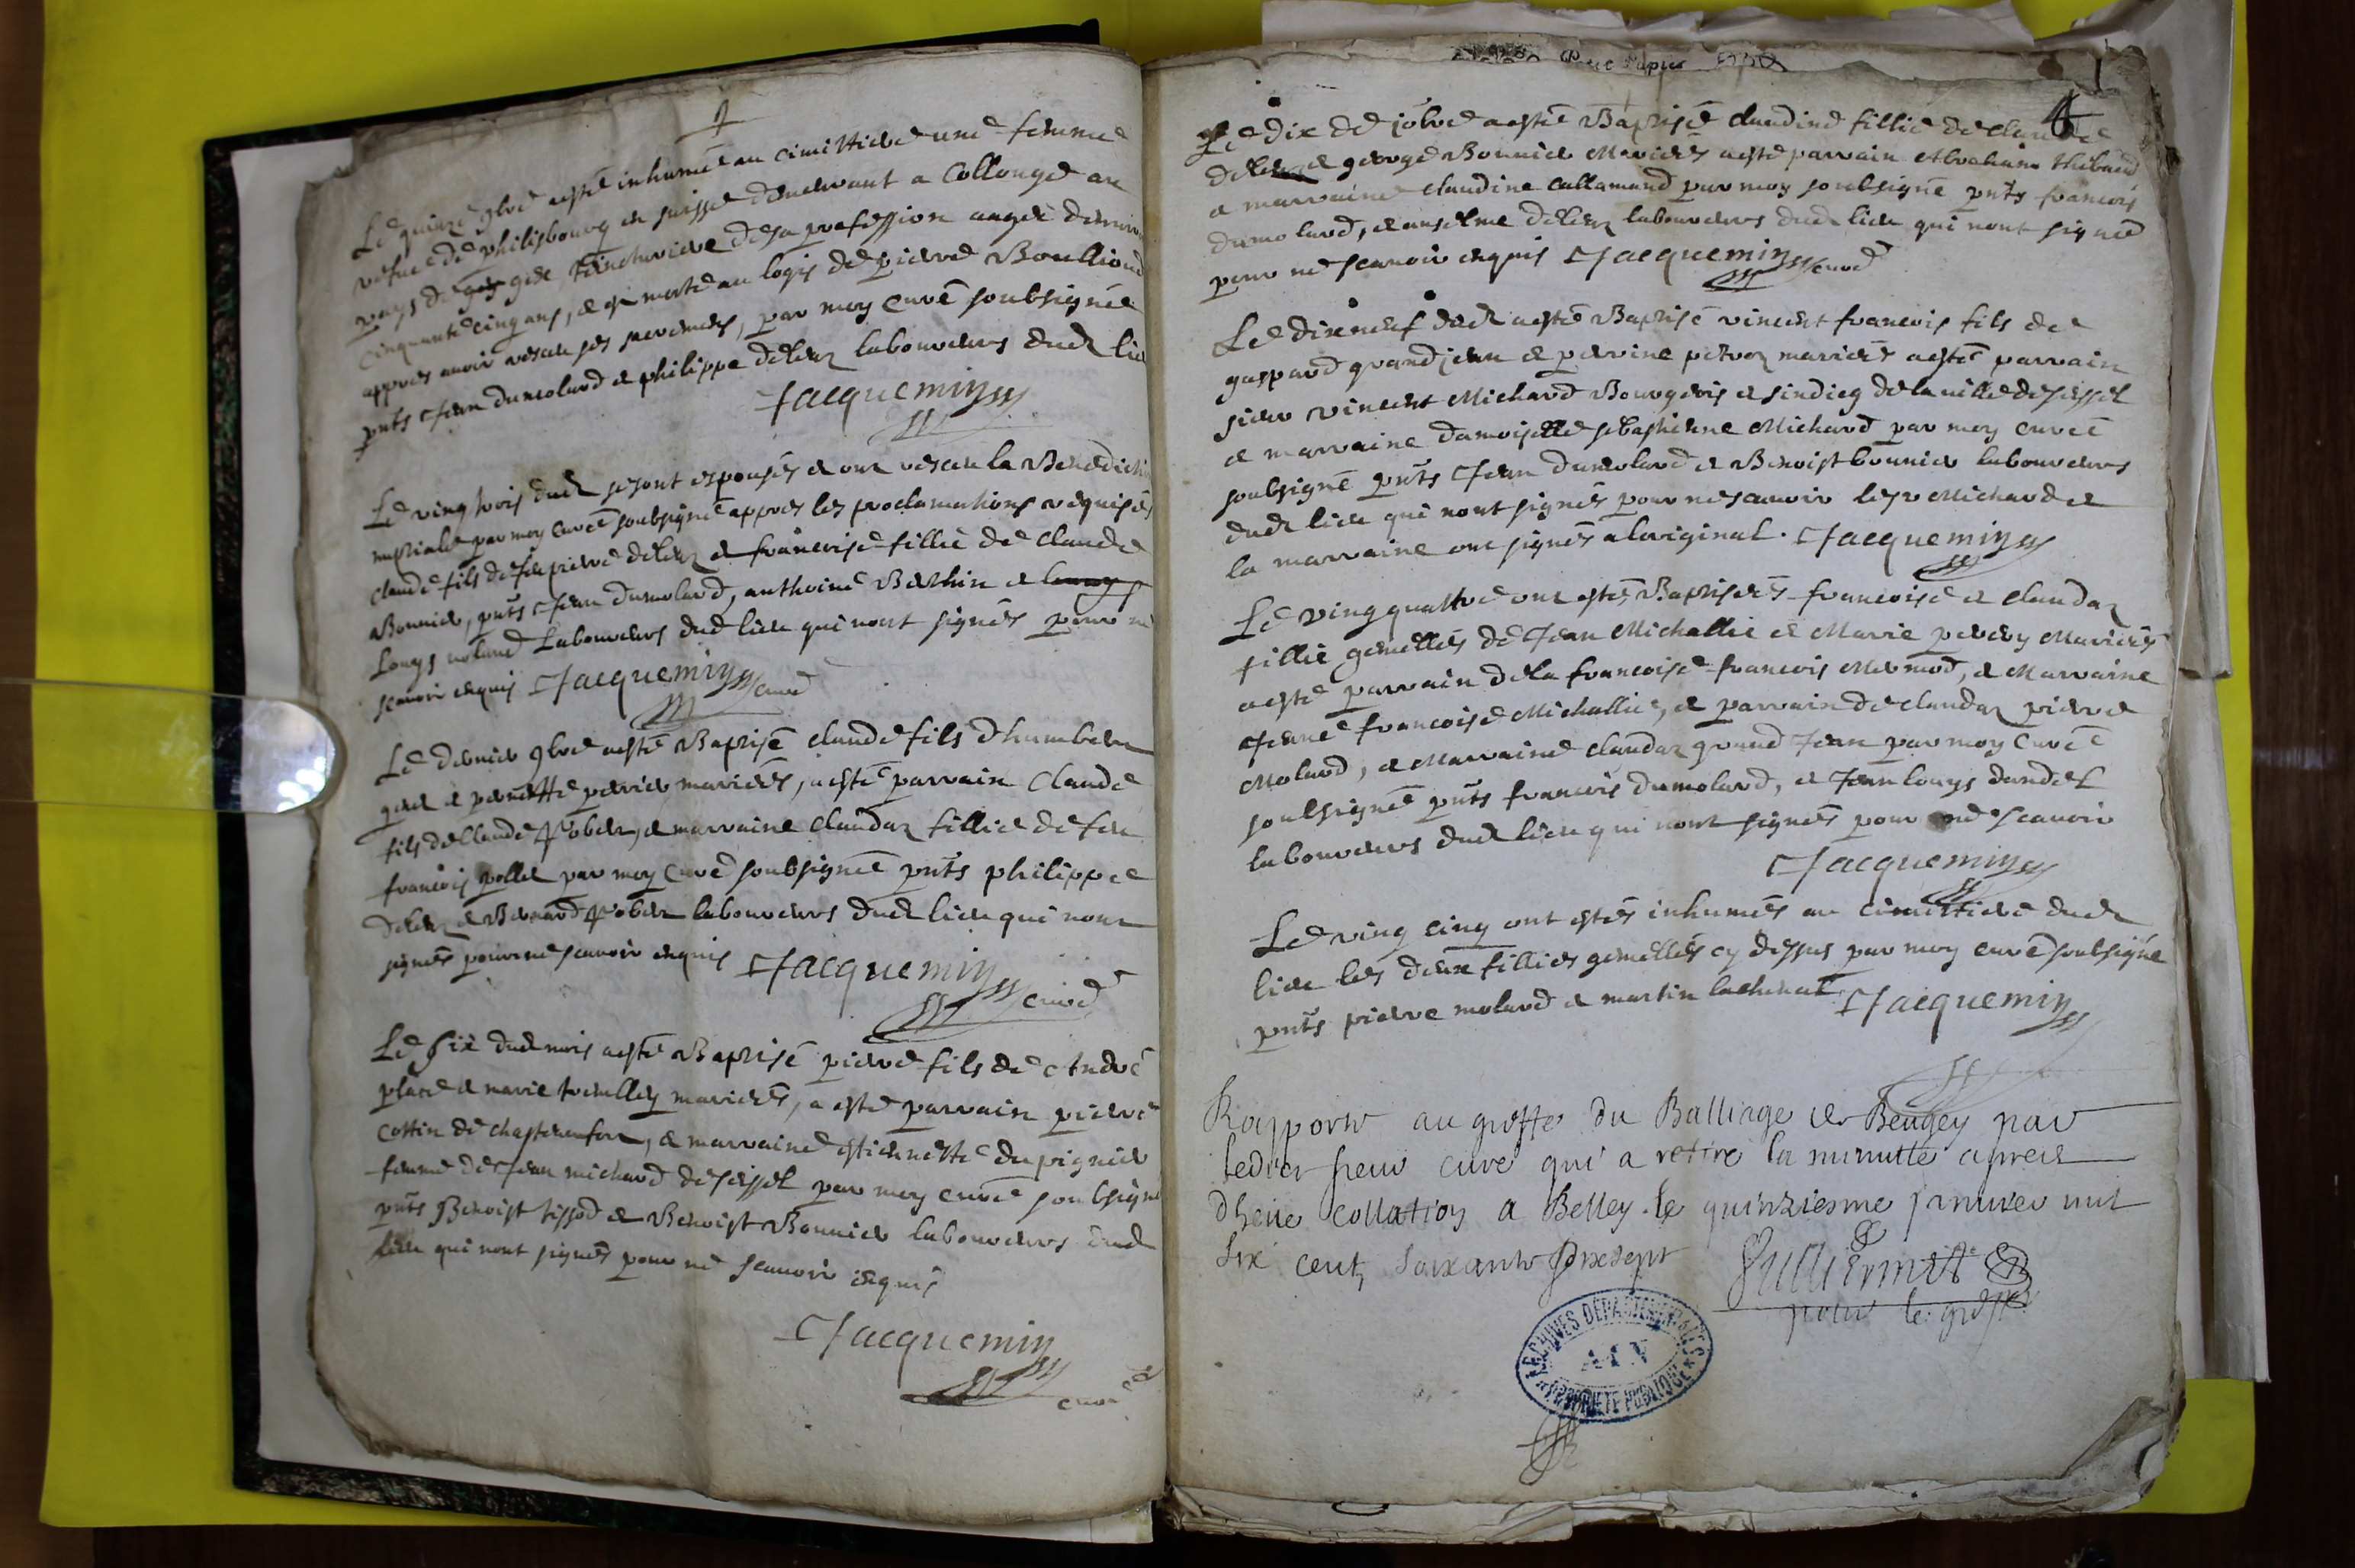 Le quinze 9bre a esté inhumée au cimittiere une femme
vefue de philisbourg en suisse demeurant a Collonge au
pays de gex de sa profession aagée denviron
cinquante cinq ans, et est morte au logis de pierre Boulliond
appres auoir receu ses sacremens, par moy curé soubsigné
pnts Jean dumolard et philippe deleaz laboureurs dud lieu
Jacquemin
Le ving trois dud se sont espousés et ont receu la Benediction
nuptiale par moy curé soubsigné appres les proclamations requises
claude fils de feu pierre deleaz et francoise fillie de claude
Bonnier, pnts Jean dumolard, anthoine Berthin et
Louys laboureurs dud lieu qui n'ont signés pour ne
scauoir enquis Jacquemin curé
Le dernier 9bre a esté Baptisé claude fils d'humbert
et pernette perrier mariés, a esté parrain Claude
fils de Claude et marraine claudaz fillie de feu
francois pollet par moy curé soubsigné pnts philippe
deleaz et Bernard laboureurs dud lieu qui n'ont
signés pour ne scauoir enquis Jacquemin curé
Le six dud mois a esté Baptisé pierre fils de André
place et marie mariés, a esté parrain pierre
cottin de chastenenfort, et marraine estiennette du pignier
femme de Jean michard de seissel par moy curé soubsigné
pnts Benoist tissod et Benoist Bonnier laboureurs dud
lieu qui n'ont signés pour ne scauoir enquis
Jacquemin
curé
Le dix de xbre a esté Baptisée claudine fillie de claude
deleaz et george Bonnier mariés a esté parrain Abraham thibaud
et marraine claudine callamand par moy soubsigné pnts francois
dumolard, et anselme deleaz laboureurs dud lieu qui n'ont signé
pour ne scauoir enquis Jacquemin curé
Le dixneuf dud a esté Baptisé vincent francois fils de
gaspard grandjean et perrine mariés a esté parrain
sieur vincent Michard Bourgeois et sindicq de la ville de seissel
et marraine damoiselle sebastienne Michard par moy curé
soubsigné pnts Jean dumolard et Benoist bonnier laboureurs
dud lieu qui n'ont signés pour ne scauoir lesr Michard et
la marraine ont signés a l'original. Jacquemin
Le ving quattre ont estés Baptisées francoise et claudaz
fillie gemelles de Jean Michallie et Marie perey Mariés
a esté parrain de la francoise francois Mermod, et Marraine
Jeane francoise Michallie, et parrain de claudaz pierre
Molard, et Marraine claudaz grand Jean par moy Curé
soubsigné pnts francois dumolard, et Jean louys dandel
laboureurs dud lieu qui n'ont signés pour ne scauoir
Jacquemin
Le ving cinq ont estés inhumés au cimittiere dud
lieu les deux fillies gemelles cy dessus par moy curé soubsigné
pnts pierre molard et martin lachenal Jacquemin
Rapporté au greffe du Balliage de Beugey par
ledict sieur curé qui a retiré la minutte aprect
dheue collation a Belley le quinziesme janvier mil
six cent soixante dixsept
pour le greffe
ARCHIVES DÉPARTEMENTALES
AIN
PROPRIÉTÉ PUBLIQUE